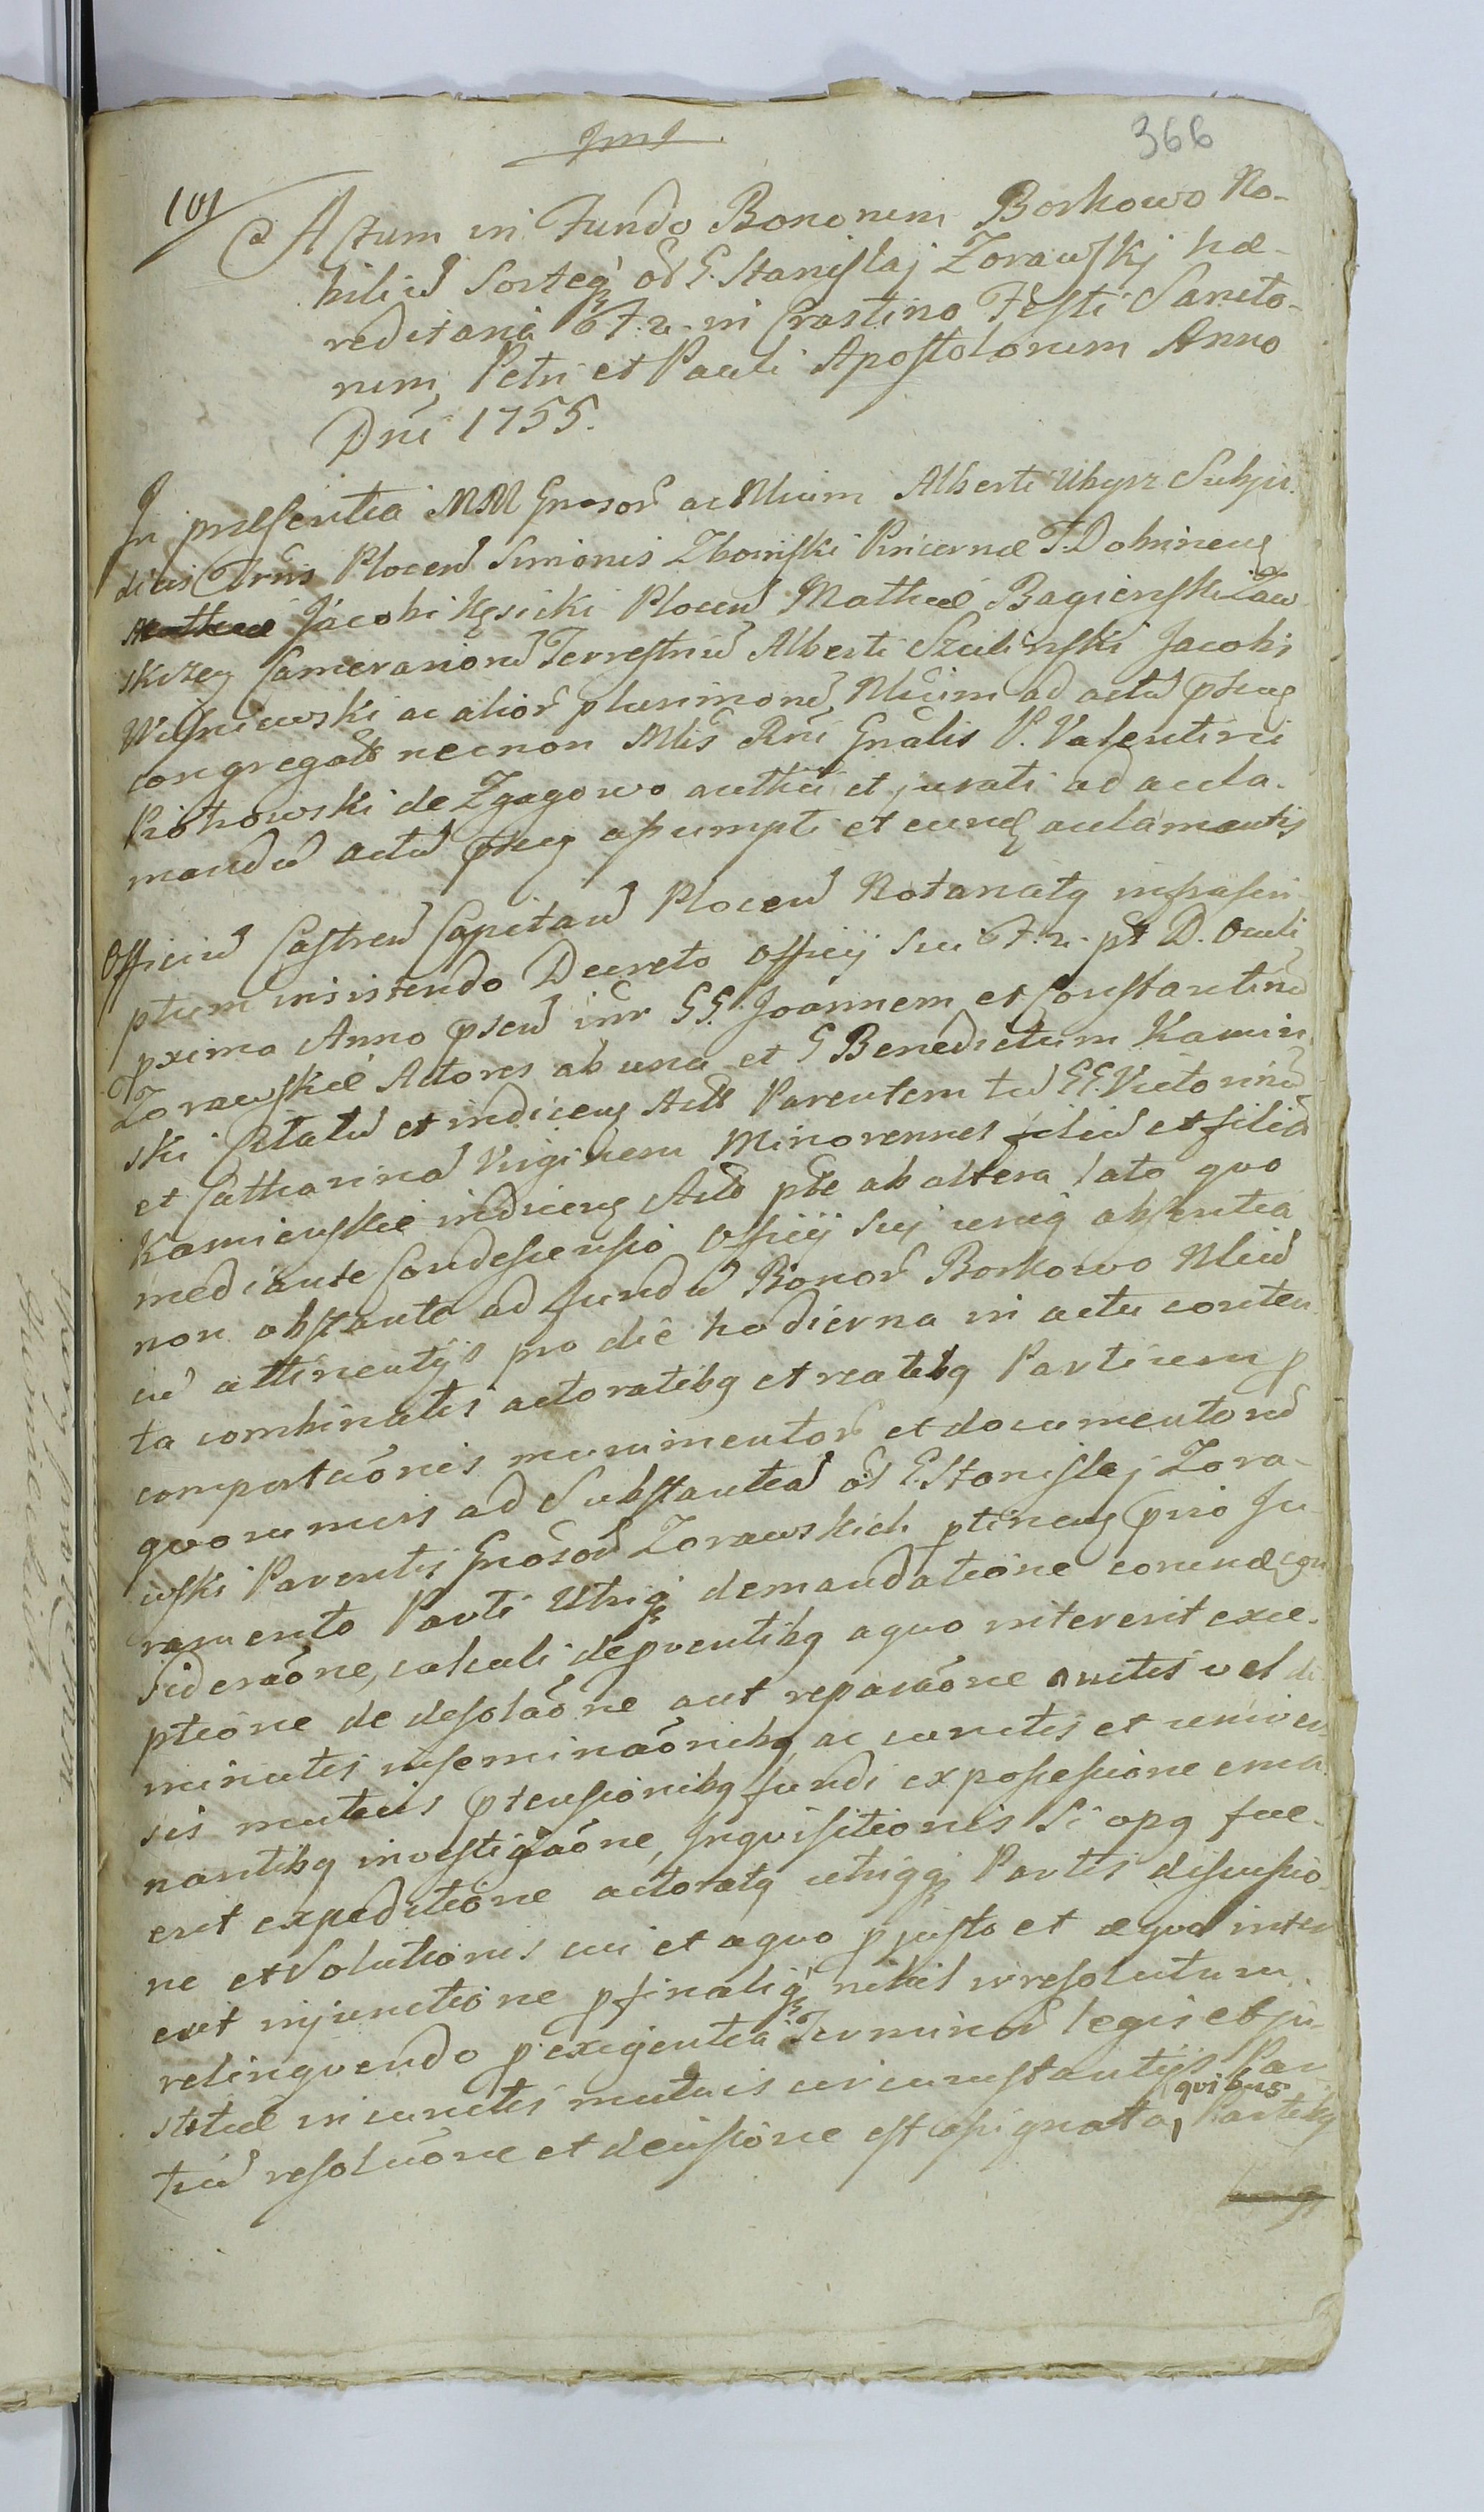 366
101
Actum in Fundo Bonorum Borkowo No-
biliū Sorteq₃ oł G. Stanislaj Zorawskj hæ-
reditaria F. 2. in Crastino Festi Sancto-
rum Petri et Pauli Apostolorum Anno
Dni 1755.
In præsentia MM Gnosor ac Nlium Alberti Ubysz Subju-
dicis Trris Plocen Simonis Zboinski Pincernæ T. Dobrinen
Jacobi Kęsicki Plocen Mathæi Bagienski Zaw
skrzen Camerariorū Terrestriū Alberti Szulinski Jacobi
Wisniewski ac alior plurimorū Nlium ad actū pñtem
congregatt necnon Mlis Rni Gnalis P. Valentini
Piotrowski de Zgagowo authci et jurati ad acla-
mandū actū pñtem assumpti et eundem aclamantis
Officiū Castren Capitan Plocen Notariatq infrascri-
ptum insistendo Decreto Officij sui F. 2. pt D. Oculi
pxima Anno psen intr GG. Joannem et Constantinū
Zorawskie Actores ab una et G Benedictum Kamin
ski Citatū et indicen Actt Parentem tū GG. Victorinū
et Catharinā Virginem Minorennes filiū et filiā
Kamienskie indicen Actt pte ab altera lato quo
mediante Condescensio Officij sui uniq absentia
non obstante ad fundū Bonor Borkowo Nliū
cū attinentijs pro die hodierna in actu conten
ta combinatis actoratibq et reatibq Partium p
comportaõnes munimentor et documentorū
quorumvis ad Substantiā oł G. Stanislaj Zora-
wski Parentis Gnosor Zorawskich ptinen pvio Ju-
ramento Parti Utriq₃ demandatione eorundem con
sideraõne, calculi de pventibq a quo intererit exce-
ptione de desolaõne aut reparaõne auctis vel di
minutis inseminaõnibq ac cunctis et univer
sis mutuis ptensionibq fundi ex possessione ema
nantibq investigaõne, Inquisitionis Si opq fue-
rit expeditione actoratq utriqq₃ Partis discussio
ne et Solutionis cui et a quo p justo et æquo inter
erit injunctione p finaliq₃ nihil irresolutum
relinquendo p exigentia Terminor legis et ju-
stitiæ in cunctis mutuis circumstantijs Par
tiū resoluõne et decisione est assignata, quibus Partibq